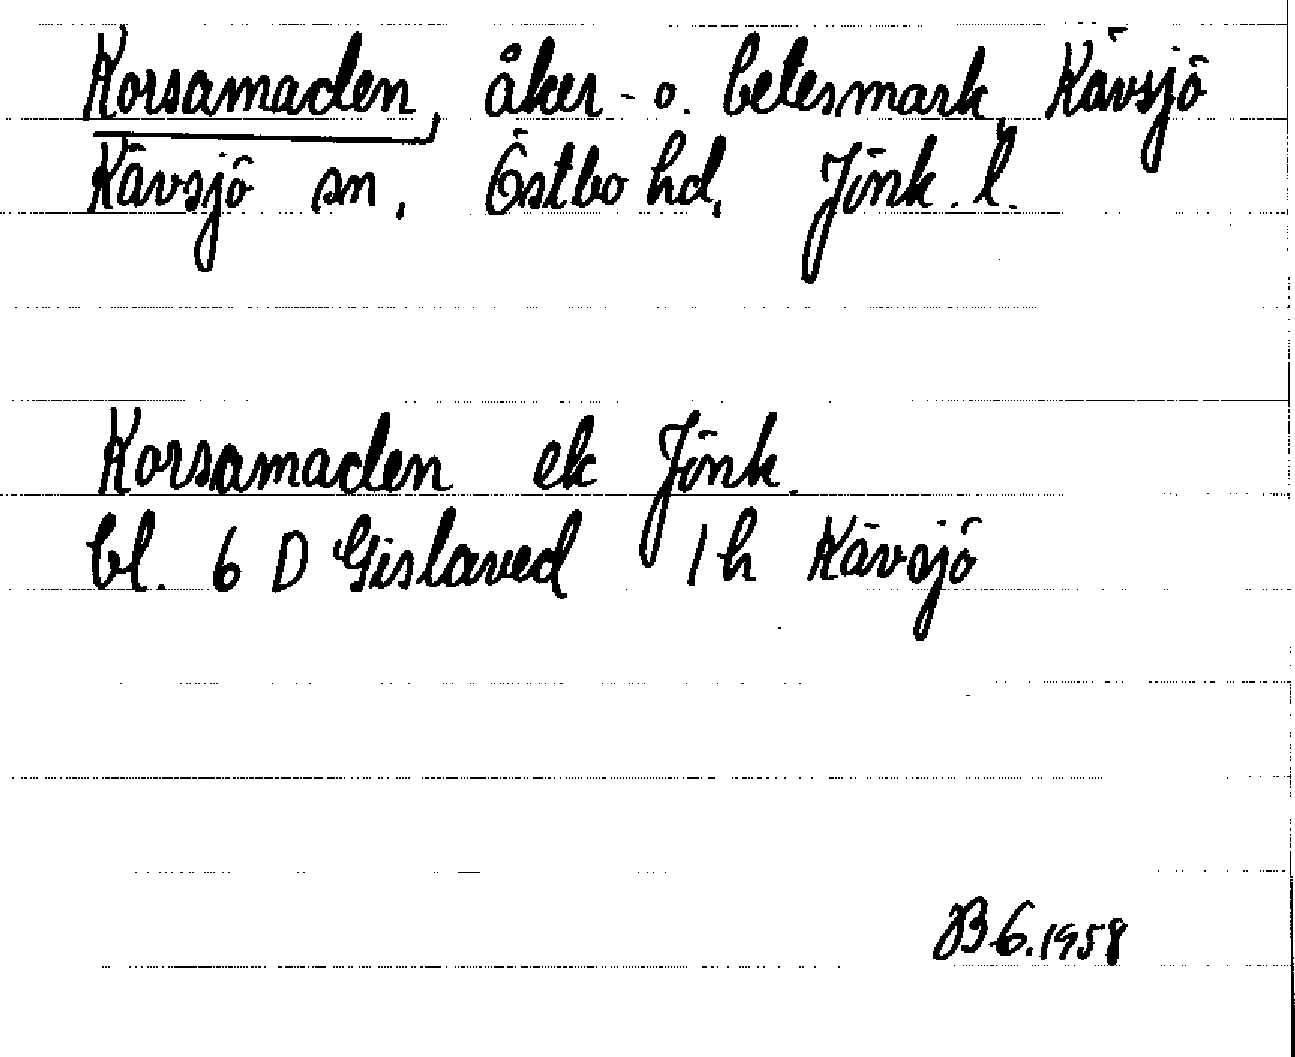 Korsamaden, åker- o. betesmark, Kävsjö
Kävsjö sn, Östbo hd, Jönk. l.
Korsamaden ek Jönk.
bl. 6 D Gislaved 1h Kävsjö
JB 6.1958